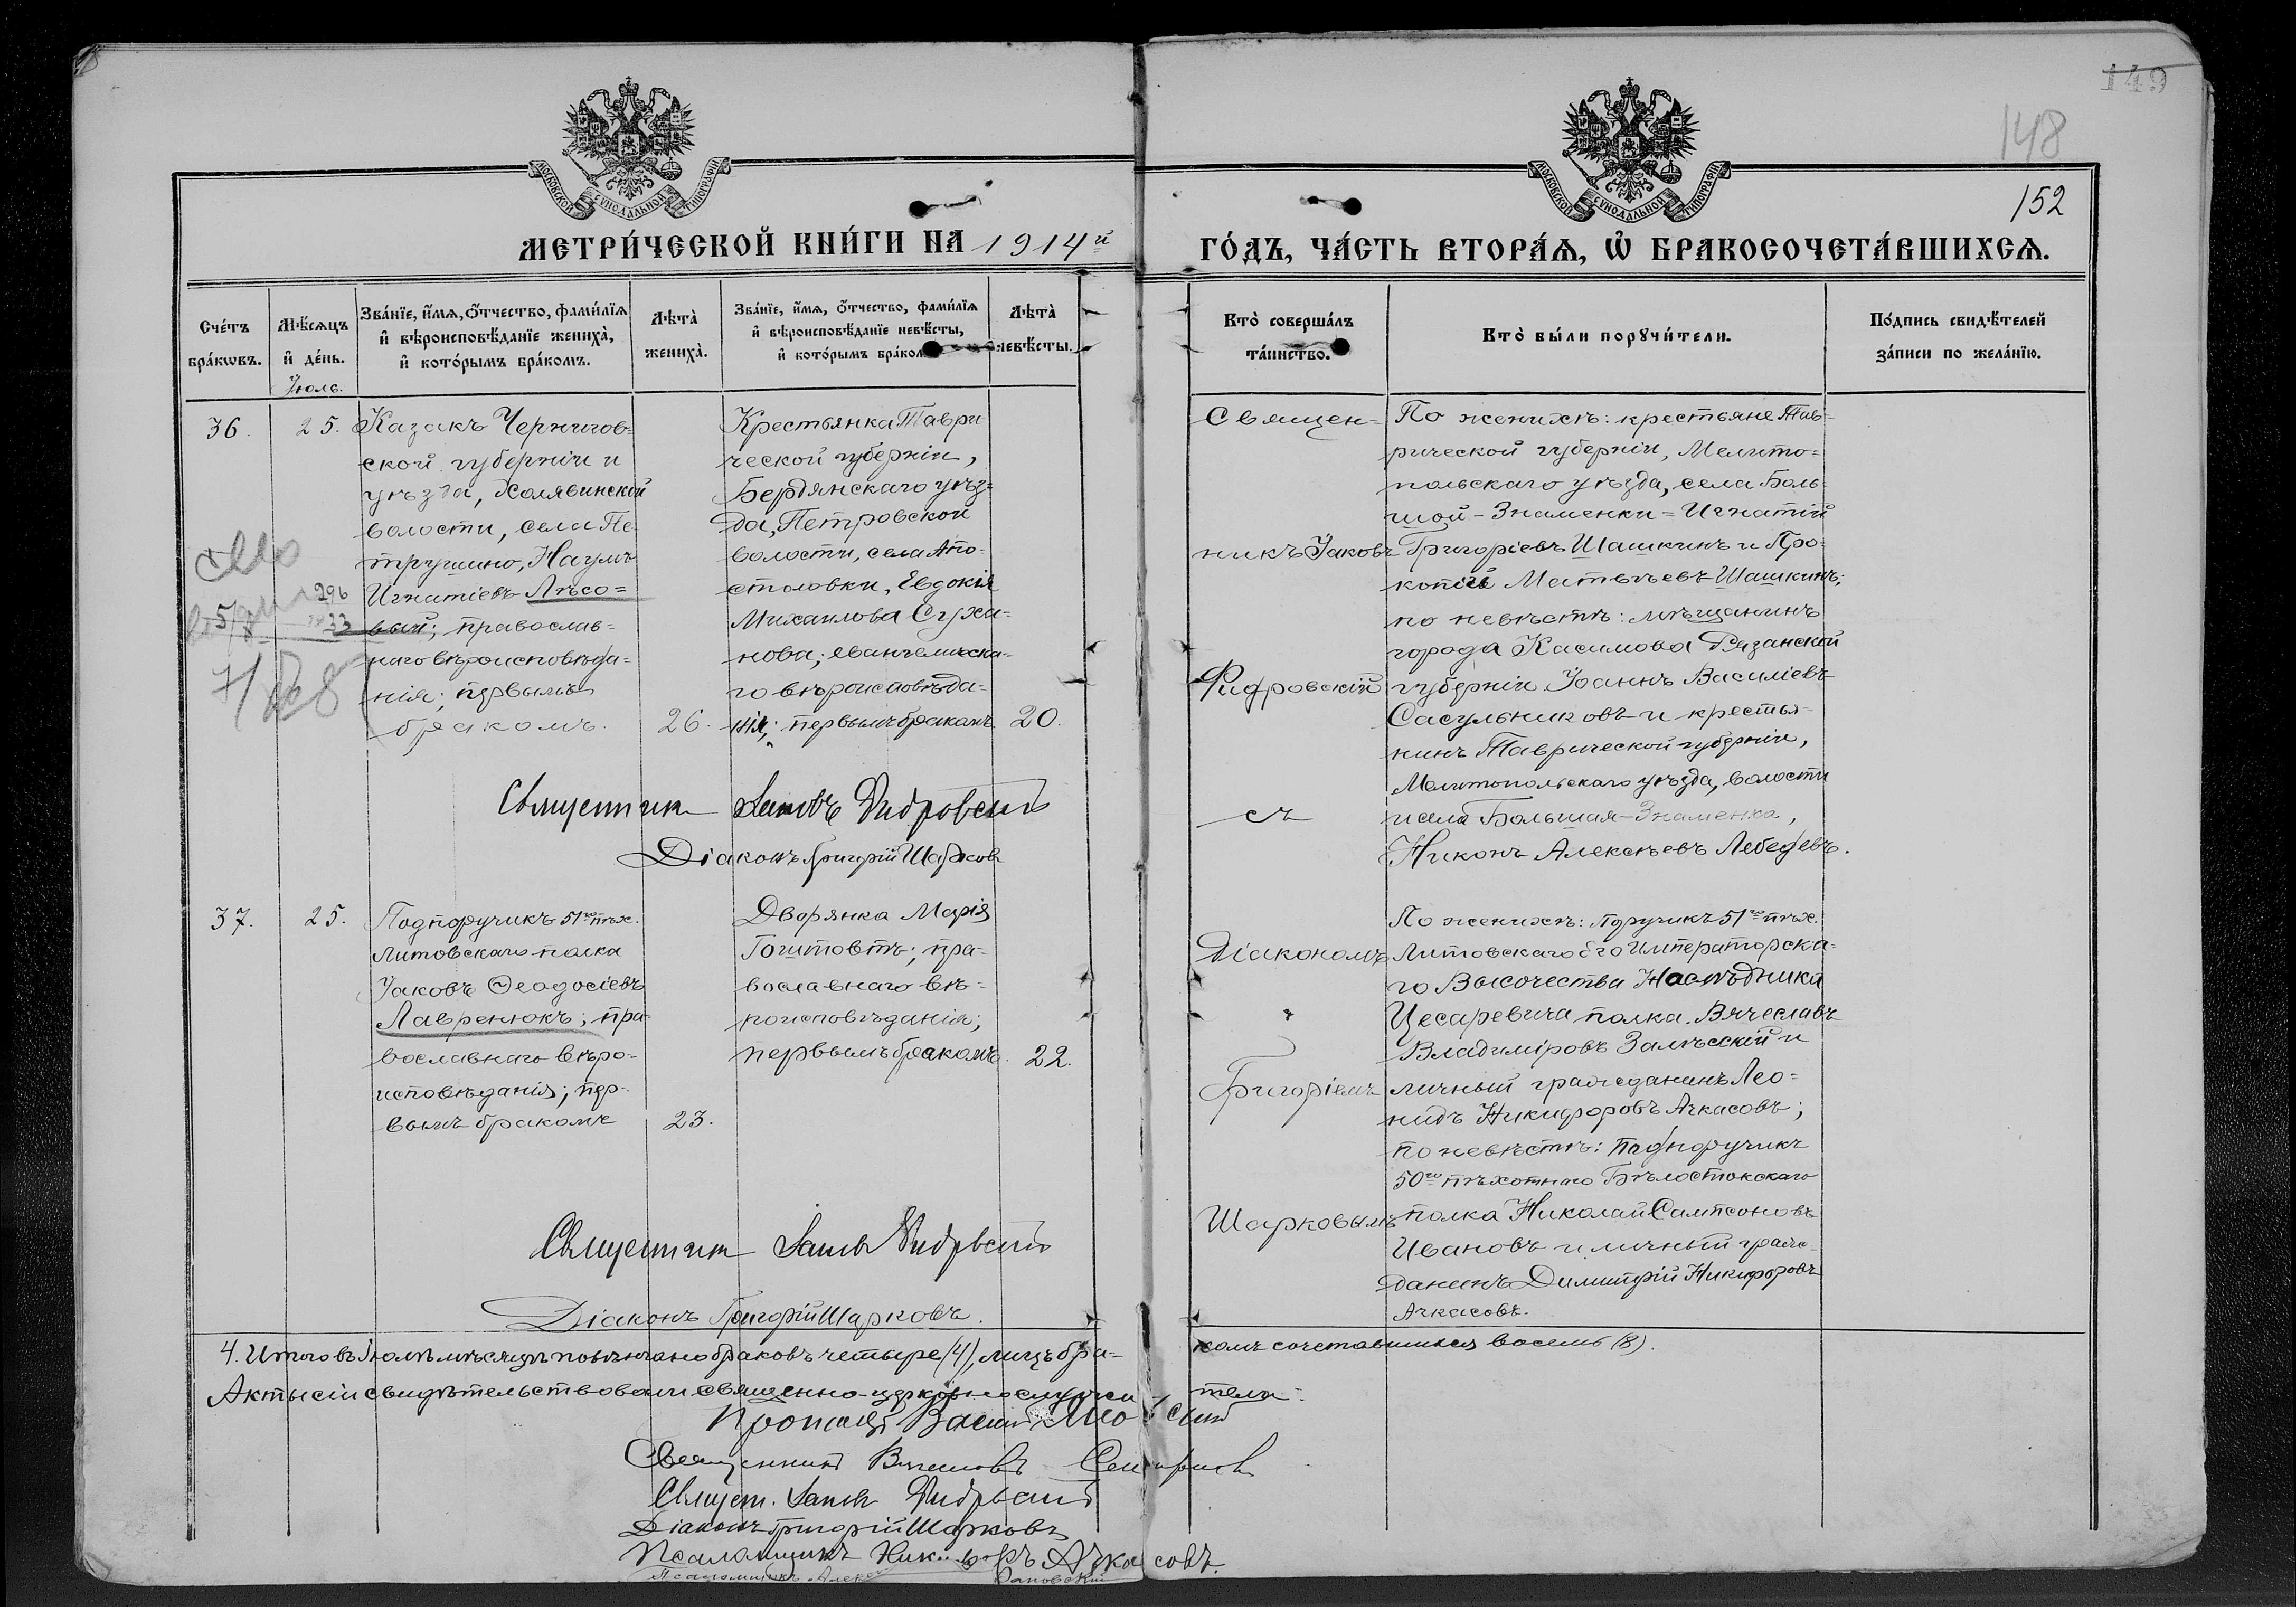 149
148
152
МОСКОВСКОЙ СѴНОДАЛЬНОЙ ТИПОГРАФІИ
МОСКОВСКОЙ СѴНОДАЛЬНОЙ ТИПОГРАФІИ
МЕТРИ́ЧЕСКОЙ КНИ́ГИ НА 1914й
ГО́ДЪ, ЧА́СТЬ ВТОРА́Ѧ, Ѡ҆ БРАКОСОЧЕТА́ВШИХСѦ.
Сче́тъ бра́кѡвъ.
Мѣ́сѧцъ и҆ де́нь.
Іюль.
Зва́нїе, и҆́мѧ, ѻ҆́тчество, фами́лїѧ и҆ вѣроисповѣ́данїе жениха̀, и҆ кото́рымъ бра́комъ.
Лѣта̀ жениха̀.
Зва́нїе, и҆́мѧ, ѻ҆́тчество, фами́лїѧ и҆ вѣроисповѣ́данїе невѣ́сты, и҆ кото́рымъ бра́ком
Лѣта̀ невѣ́сты.
Кто̀ соверша́лъ та́инство.
Кто̀ бы́ли порꙋчи́тели.
По́дпись свидѣ́телей за́писи по жела́нїю.
36.
25.
Казакъ Чернигов=
ской губерніи и
уѣзда, Холявинской
волости, села Пе-
трушино, Наумъ
Игнатіевъ Лѣсо=
вый; православ=
наго вѣроисповѣда=
нія; первымъ
бракомъ.
26.
Крестьянка Таври
ческой губерніи,
Бердянскаго уѣз=
да, Петровской
волости, села Апо-
столовки, Евдокія
Михаилова Суха-
нова; евангеличска-
го вѣроисповѣда=
нія; первымъ бракомъ
20.
296
Священникъ Іаковъ Фидровскій
Діаконъ Григорій Шарковъ
Священ=
никъ Іаковъ
Фидровскій
съ
По женихѣ: крестьяне Тав=
рической губерніи, Мелито=
польскаго уѣзда, села Боль=
шой-Знаменки = Игнатій
Григоріевъ Шашкинъ и Про=
копій Матвѣевъ Шашкинъ;
по невѣстѣ: мѣщанинъ
города Касимова Рязанской
губерніи Іоаннъ Василіевъ
Сасульниковъ и крестья-
нинъ Таврической губерніи,
Мелитопольскаго уѣзда, волости
и села Большая-Знаменка,
Никонъ Алексѣевъ Лебедевъ.
37.
25.
Подпоручикъ 51го пѣх.
Литовскаго полка
Іаковъ Ѳеодосіевъ
Лавренюкъ; пра-
вославнаго вѣро-
исповѣданія; пер-
вымъ бракомъ
23.
Дворянка Марія
Гоштовтъ; пра-
вославнаго вѣ-
роисповѣданія;
первымъ бракомъ.
22.
Священникъ Іаковъ Фидровскій
Діаконъ Григорій Шарковъ.
Діакономъ
Григоріемъ
Шарковымъ
По женихѣ: поручикъ 51го пѣх.
Литовскаго Его Императорска-
го Высочества Наслѣдника
Цесаревича полка. Вячеславъ
Владиміровъ Залѣсскій и
личный гражданинъ Лео=
нидъ Никифоровъ Ачкасовъ;
по невѣстѣ: подпоручикъ
50го пѣхотнаго Бѣлостокскаго
полка Николай Сампсоновъ
Ивановъ и личный граж-
данинъ Димитрій Никифоровъ
Ачкасовъ.
4. Итого въ Іюлѣ мѣсяцѣ повѣнчано браковъ четыре (4), лицъ бра-
комъ сочетавшихся восемь (8).
Акты сіи свидѣтельствовали священно-церковнослужи-
тели:
Протоіерей Василій
Священникъ
Священ. Іаковъ Фидровскій
Діаконъ Григорій Шарковъ
Псаломщикъ Никифоръ Ачкасовъ.
Псаломщикъ